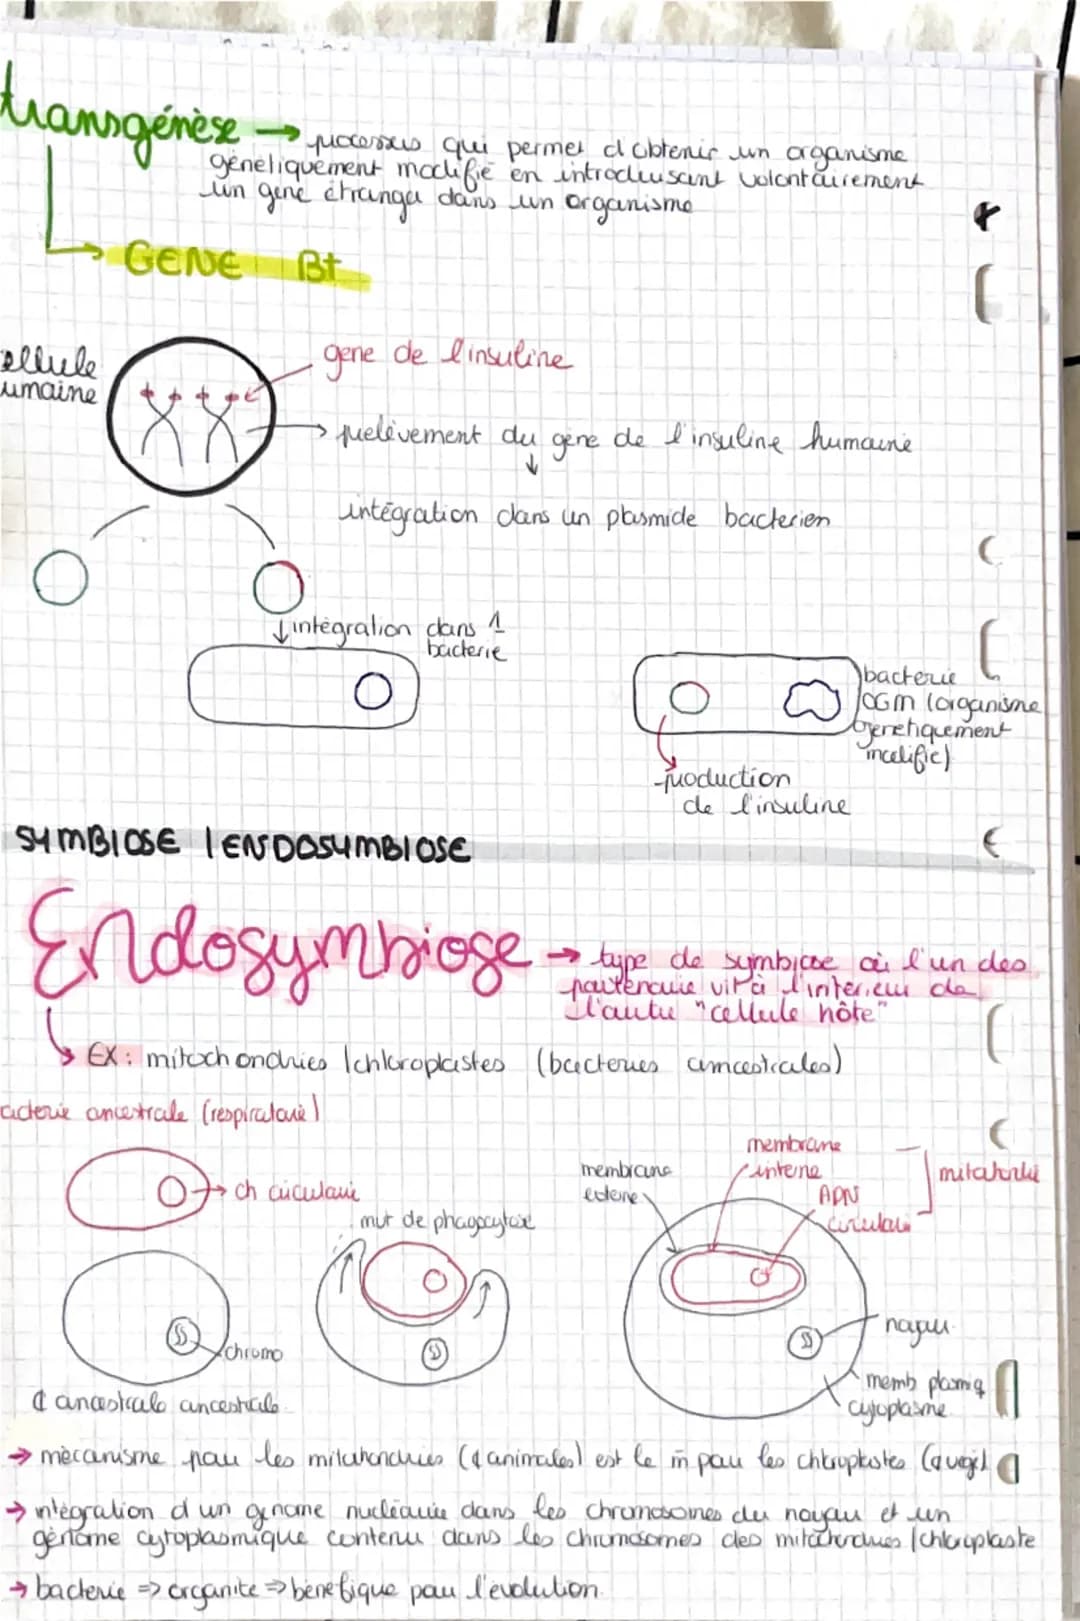 transgénèse → processus qui permet d'obtenir un organisme
génétiquement modifié en introduisant volontairement
un gène étranger dans un organisme
GENE Bt
ellule
umaine
gene de l'insuline
prelèvement du gène de l'insuline humaine
intégration dans un plasmide bacterien
intégration dans 1
bacterie
bacterie
OGM (organisme
genetiquement
modifié)
production
de l'insuline
SYMBIOSE / ENDOSYMBIOSE
Endosymbiose → type de symbiose où l'un des
partenaire vit à l'interieur de
l'autre "cellule hôte"
EX : mitochondries / chloroplastes (bacteries ancestrales)
acterie ancestrale (respiratoire)
ch circulaire
mvt de phagocytose
membrane
externe
membrane
interne
ADN
circulaire
mitochondrie
chromo
noyau
memb plasmiq
cytoplasme
ancestrale ancestrale
→ mécanisme pour les mitochondries (¢ animales) est le m̂ pour les chloroplastes (¢ végét)
→ intégration d'un génome nucléaire dans les chromosomes du noyau et un
génome cytoplasmique contenu dans les chromosomes des mitochondries / chloroplaste
→ bacterie => organite => bénéfique pour l'évolution.